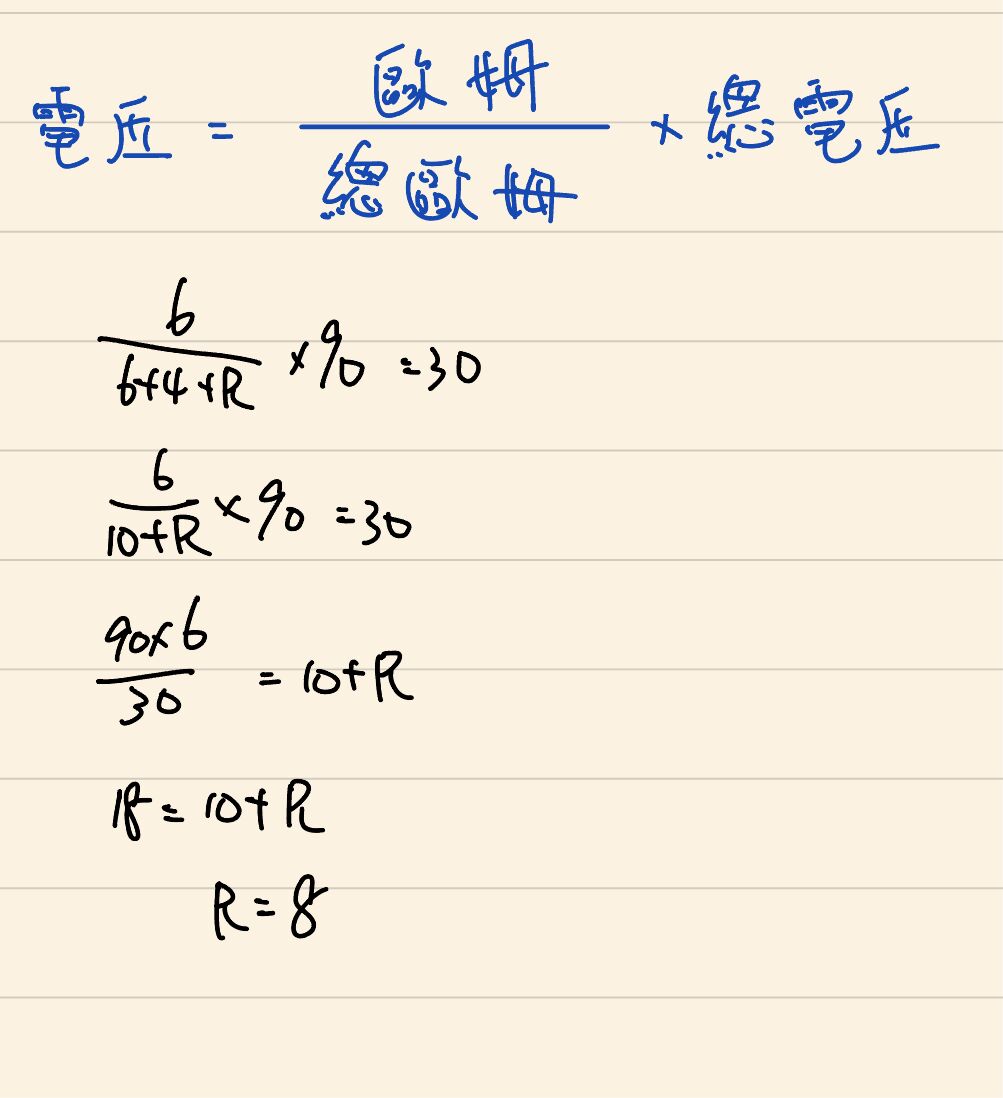 電壓 = 歐姆 / 總歐姆 × 總電壓
6 / 6+4+R × 90 = 30
6 / 10+R × 90 = 30
90×6 / 30 = 10+R
18 = 10+R
R = 8